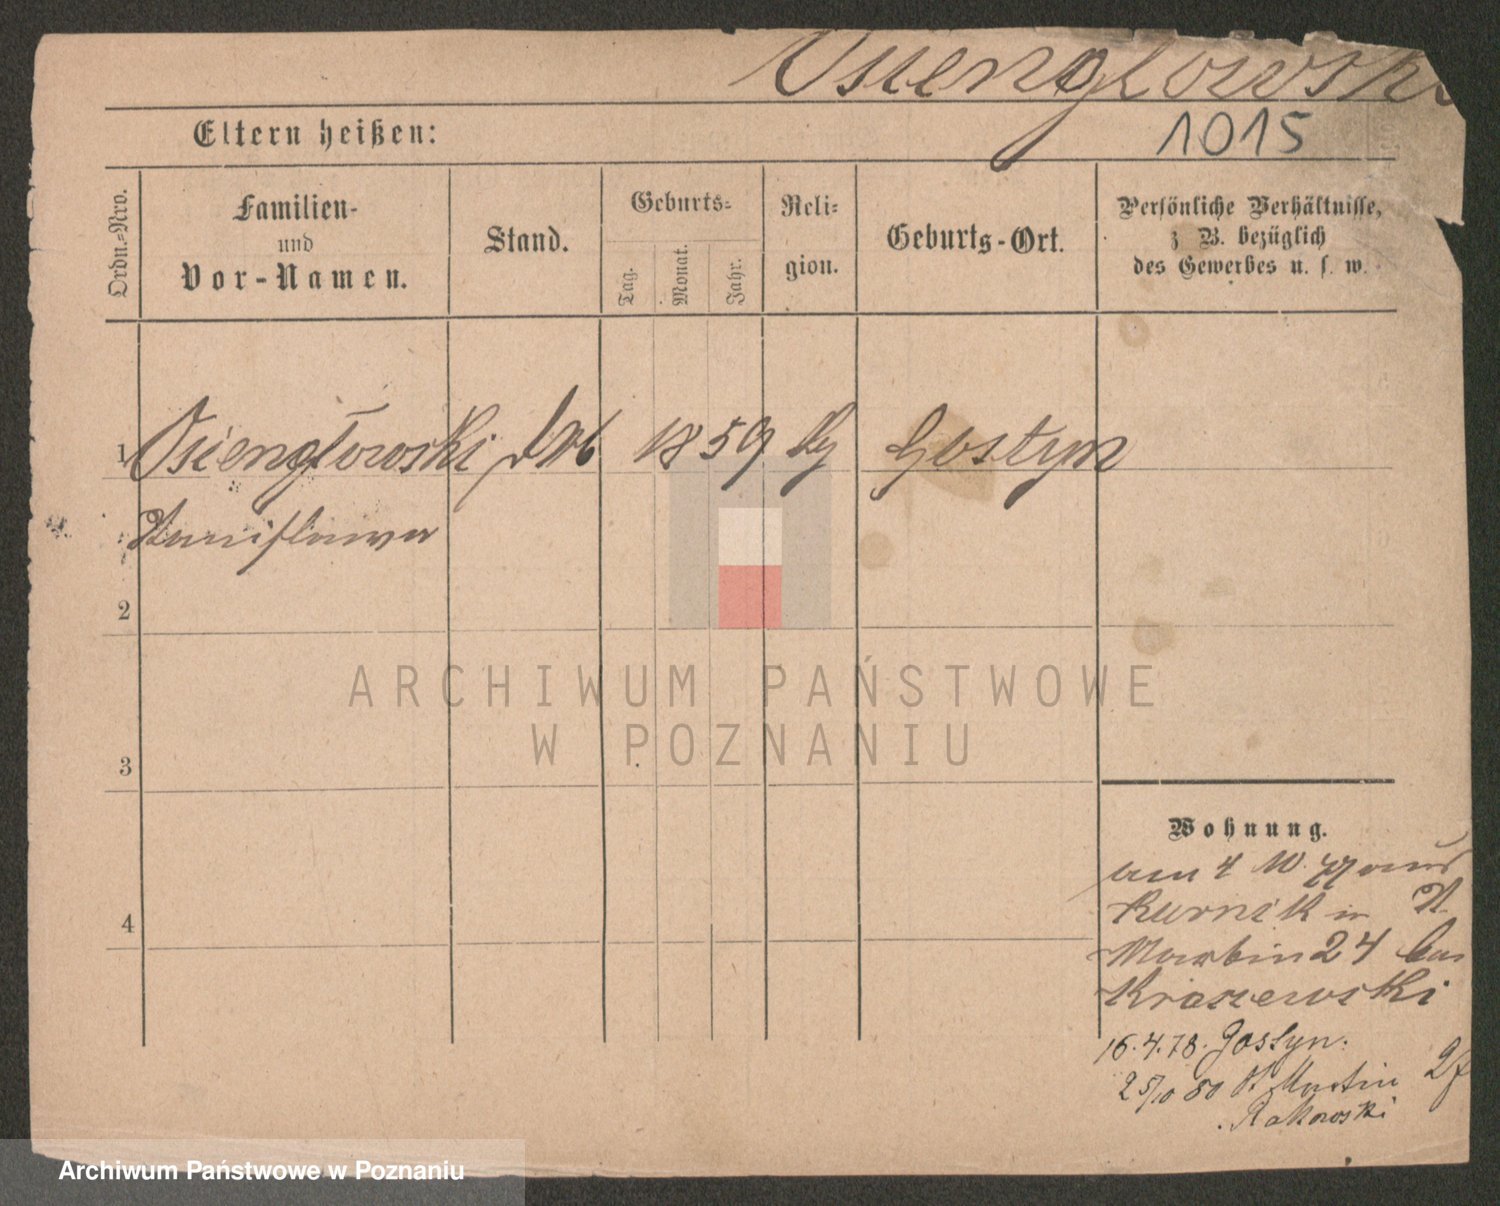 Osienglowski
1015
Eltern heißen:
Ordn.-Nro.
Familien-
und
Vor-Namen.
Stand.
Geburts-
Tag.
Monat.
Jahr.
Reli-
gion.
Geburts-Ort.
Persönliche Verhältnisse,
z B. bezüglich
des Gewerbes u. s. w.
1 Osienglowski 1859 Gostyn
Stanislawa
2
3
4
Wohnung.
am 4
Kurnik in St
Martin 24 bei
Kraszewski
16.4.78. Gostyn.
25/10 80 St Martin
Rakowski
ARCHIWUM PAŃSTWOWE
W POZNANIU
Archiwum Państwowe w Poznaniu